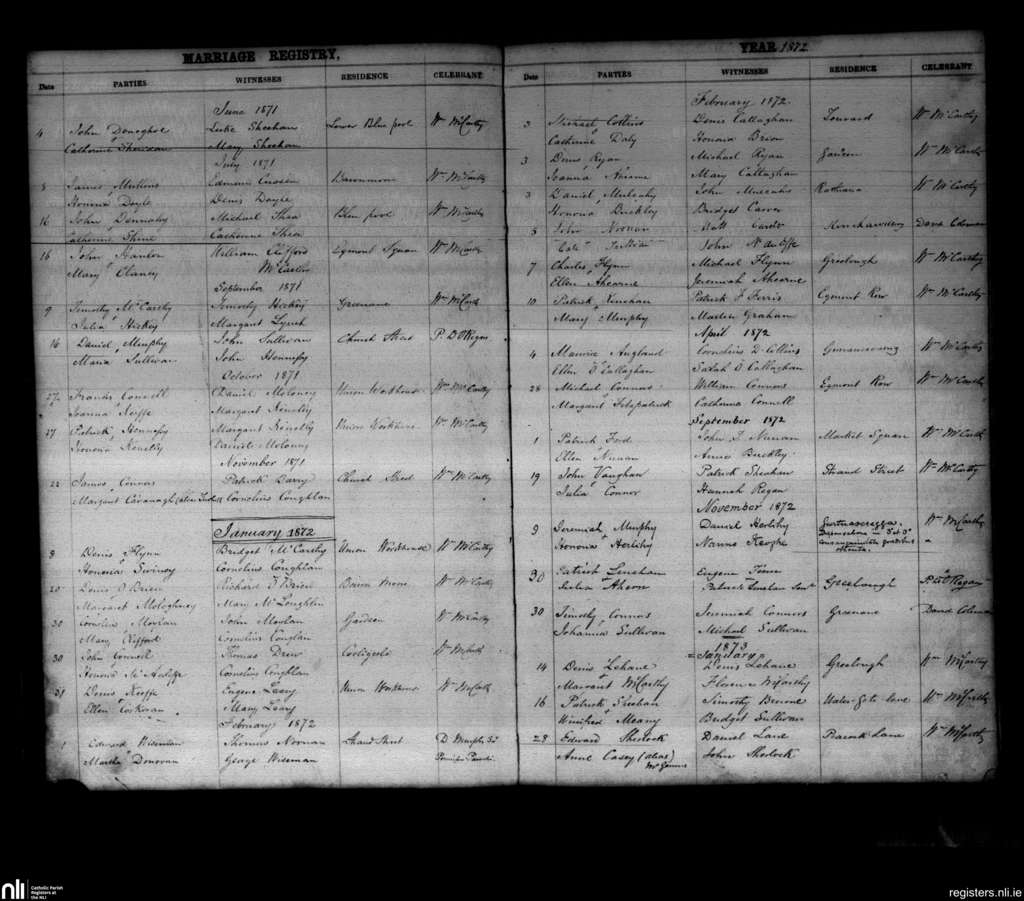 MARRIAGE REGISTRY,
Date PARTIES WITNESSES RESIDENCE CELEBRANT
June 1871
4 John Donoghoe Luke Sheehan Lower Blue pool Wm McCarthy
Catherine Sheehan Mary Sheehan
July 1871
8 James Mullins Edmund Wm McCarthy
Honora Doyle Denis Doyle
16 John Dennahy Michael Shea Blue pool Wm McCarthy
Catherine Shine Catherine Shea
16 John Hanlon William Clifford Egmont Square Wm McCarthy
Mary Clancy McCarthy
September 1871
9 Timothy McCarthy Timothy Hickey Greenane Wm McCarthy
Julia Hickey Margaret Lynch
16 Daniel Murphy John Sullivan Church Street P. D O'Regan
Maria Sullivan John Hennessy
October 1871
27 Francis Connell Daniel Moloney Union Workhouse Wm McCarthy
Joanna Keeffe Margaret Keneally
27 Patrick Hennessy Margaret Keneally Union Workhouse Wm McCarthy
Honora Keneally Daniel Moloney
November 1871
22 James Connor Patrick Barry Church Street Wm McCarthy
Margaret Cavanagh (alias Cornelius Coughlan
January 1872
8 Denis Flynn Bridget McCarthy Union Workhouse Wm McCarthy
Honoria Swiney Cornelius Coughlan
20 Denis O Brien Richard O Brien Wm McCarthy
Margaret Mologhney Mary McLoughlin
30 Cornelius Movlan John Movlan Garden Wm McCarthy
Mary Clifford Cornelius Coughlan
30 John Connell Thomas Drew Wm McCarthy
Honora McAuliffe Cornelius Coughlan
31 Denis Keeffe Eugene Leary Union Workhouse Wm McCarthy
Ellen Corkoran Mary Leary
February 1872
1 Edward Wiseman Thomas Noonan Strand Street D Murphy
Martha Donovan George Wiseman
YEAR 1872
Date PARTIES WITNESSES RESIDENCE CELEBRANT
February 1872
3 Michael Collins Denis Callaghan Wm McCarthy
Catherine Daly Honora Brien
3 Denis Ryan Michael Ryan Garden Wm McCarthy
Joanna Mary Callaghan
3 Daniel Mulcahy John Mulcahy Rathana Wm McCarthy
Honora Buckley Bridget Carver
5 John Noonan Matt David Coleman
Cate John McAuliffe
7 Charles Flynn Michael Flynn Greelough Wm McCarthy
Ellen Ahearne Jeremiah Ahearne
10 Patrick Linehan Patrick J Ferris Egmont Row Wm McCarthy
Mary Murphy Martin Graham
April 1872
4 Maurice Angland Cornelius D Collins Wm McCarthy
Ellen O Callaghan Sarah O Callaghan
28 Michael Connors William Connors Egmont Row Wm McCarthy
Margaret Fitzpatrick Catherine Connell
September 1872
1 Patrick Ford John D. Nunan Market Square Wm McCarthy
Ellen Nunan Anne Buckley
19 John Vaughan Patrick Sheehan Strand Street Wm McCarthy
Julia Connor Hannah Regan
November 1872
9 Jeremiah Murphy Daniel Herlihy Wm McCarthy
Honoria Herlihy Nanno Keoghe Dispensatione in 3° et 3° consanguinitatis gradibus obtenta
30 Patrick Lenehan Eugene Greelough P. D O'Regan
Julia Ahern Patrick
30 Timothy Connors Jeremiah Connors Greenane David Coleman
Johanna Sullivan Michael Sullivan
1873
January
14 Denis Lehane Denis Lehane Greelough Wm McCarthy
Margaret McCarthy Florence McCarthy
16 Patrick Sheehan Timothy Water-Gate lane Wm McCarthy
Winifred Meany Bridget Sullivan
28 Edward Sherlock Daniel Lane Peacock Lane Wm McCarthy
Anne Casey (alias) John Sherlock
nli Catholic Parish Registers at the NLI
registers.nli.ie